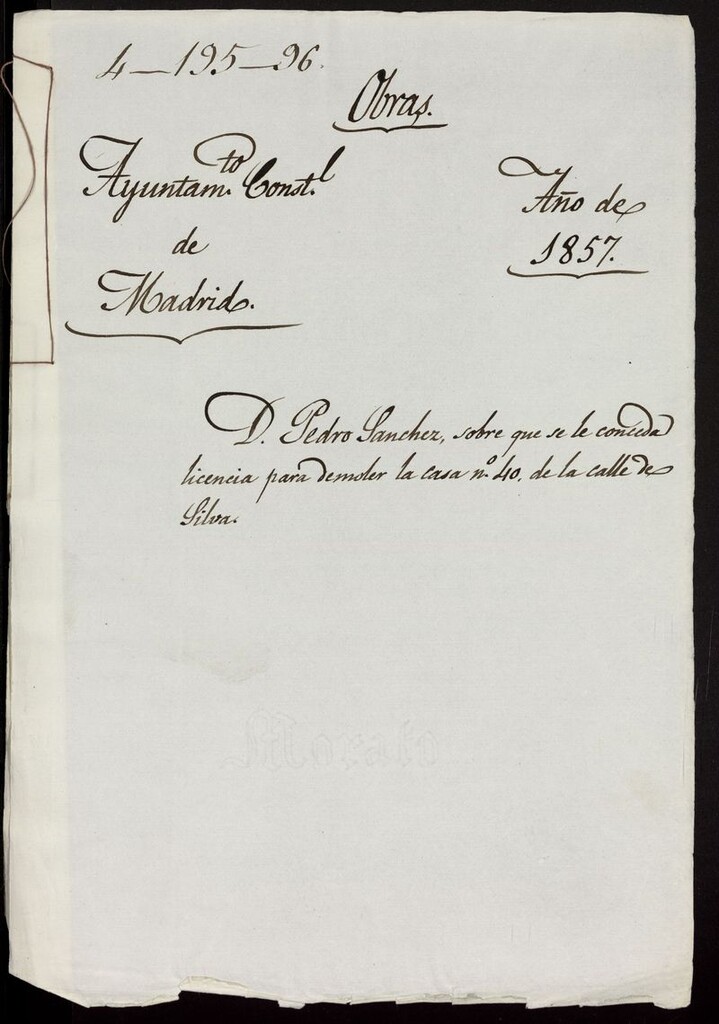 4—195—96.
Obras.
Ayuntam.to Const.l
de
Madrid.
Año de
1857.
D. Pedro Sanchez, sobre que se le conceda
licencia para demoler la casa nº 40, de la calle de
Silva.